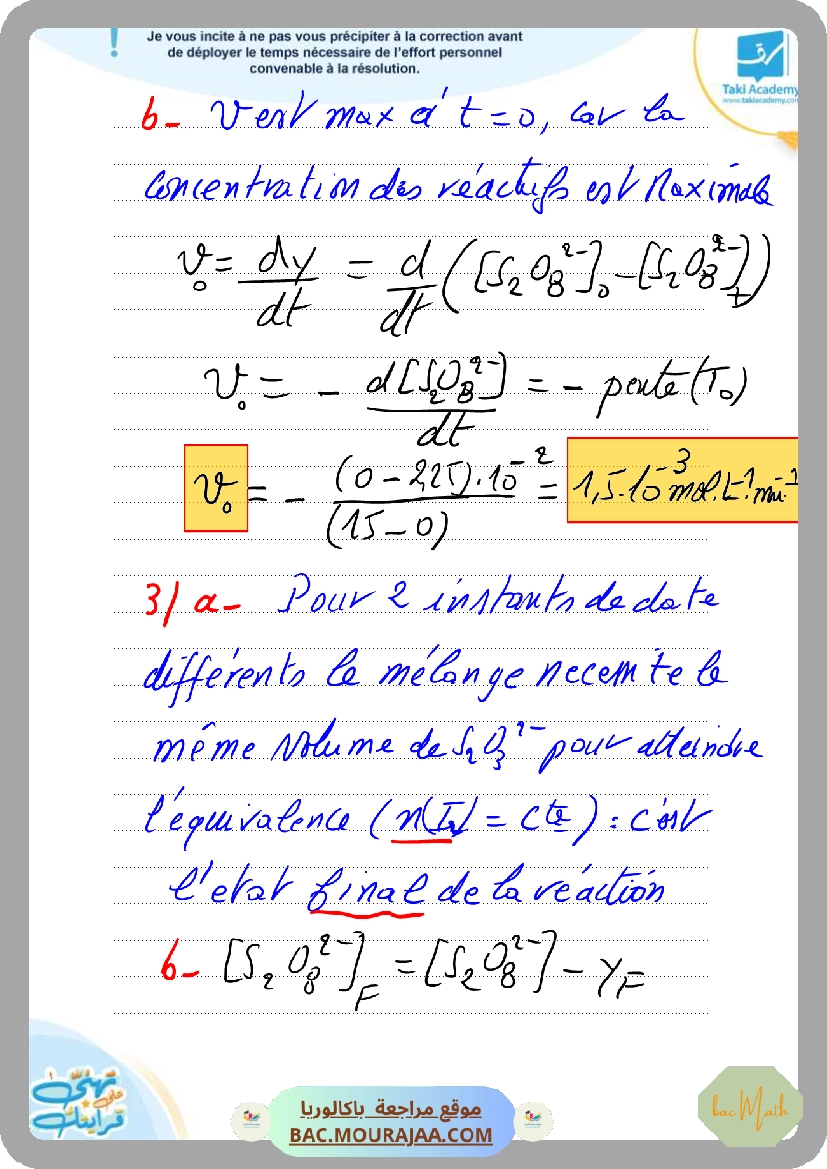 Je vous incite à ne pas vous précipiter à la correction avant
de déployer le temps nécessaire de l'effort personnel
convenable à la résolution.
Taki Academy
www.takiacademy.com
b- V est max à t = 0, car la
concentration des réactifs est Maximale
v₀ = dy/dt = d/dt ([S₂O₈²⁻]₀ - [S₂O₈²⁻]t)
v₀ = - d[S₂O₈²⁻]/dt = - pente (T₀)
v₀ = - (0 - 2,25).10⁻²/(15 - 0) = 1,5.10⁻³ mol.L⁻¹.min⁻¹
3/ a- Pour 2 instants de date
différents le mélange necessite le
même Volume de S₂O₃²⁻ pour atteindre
l'équivalence (n(I₂) = cte) : c'est
l'etat final de la réaction
b- [S₂O₈²⁻]F = [S₂O₈²⁻] - yF
موقع مراجعة باكالوريا
BAC.MOURAJAA.COM
bac Math